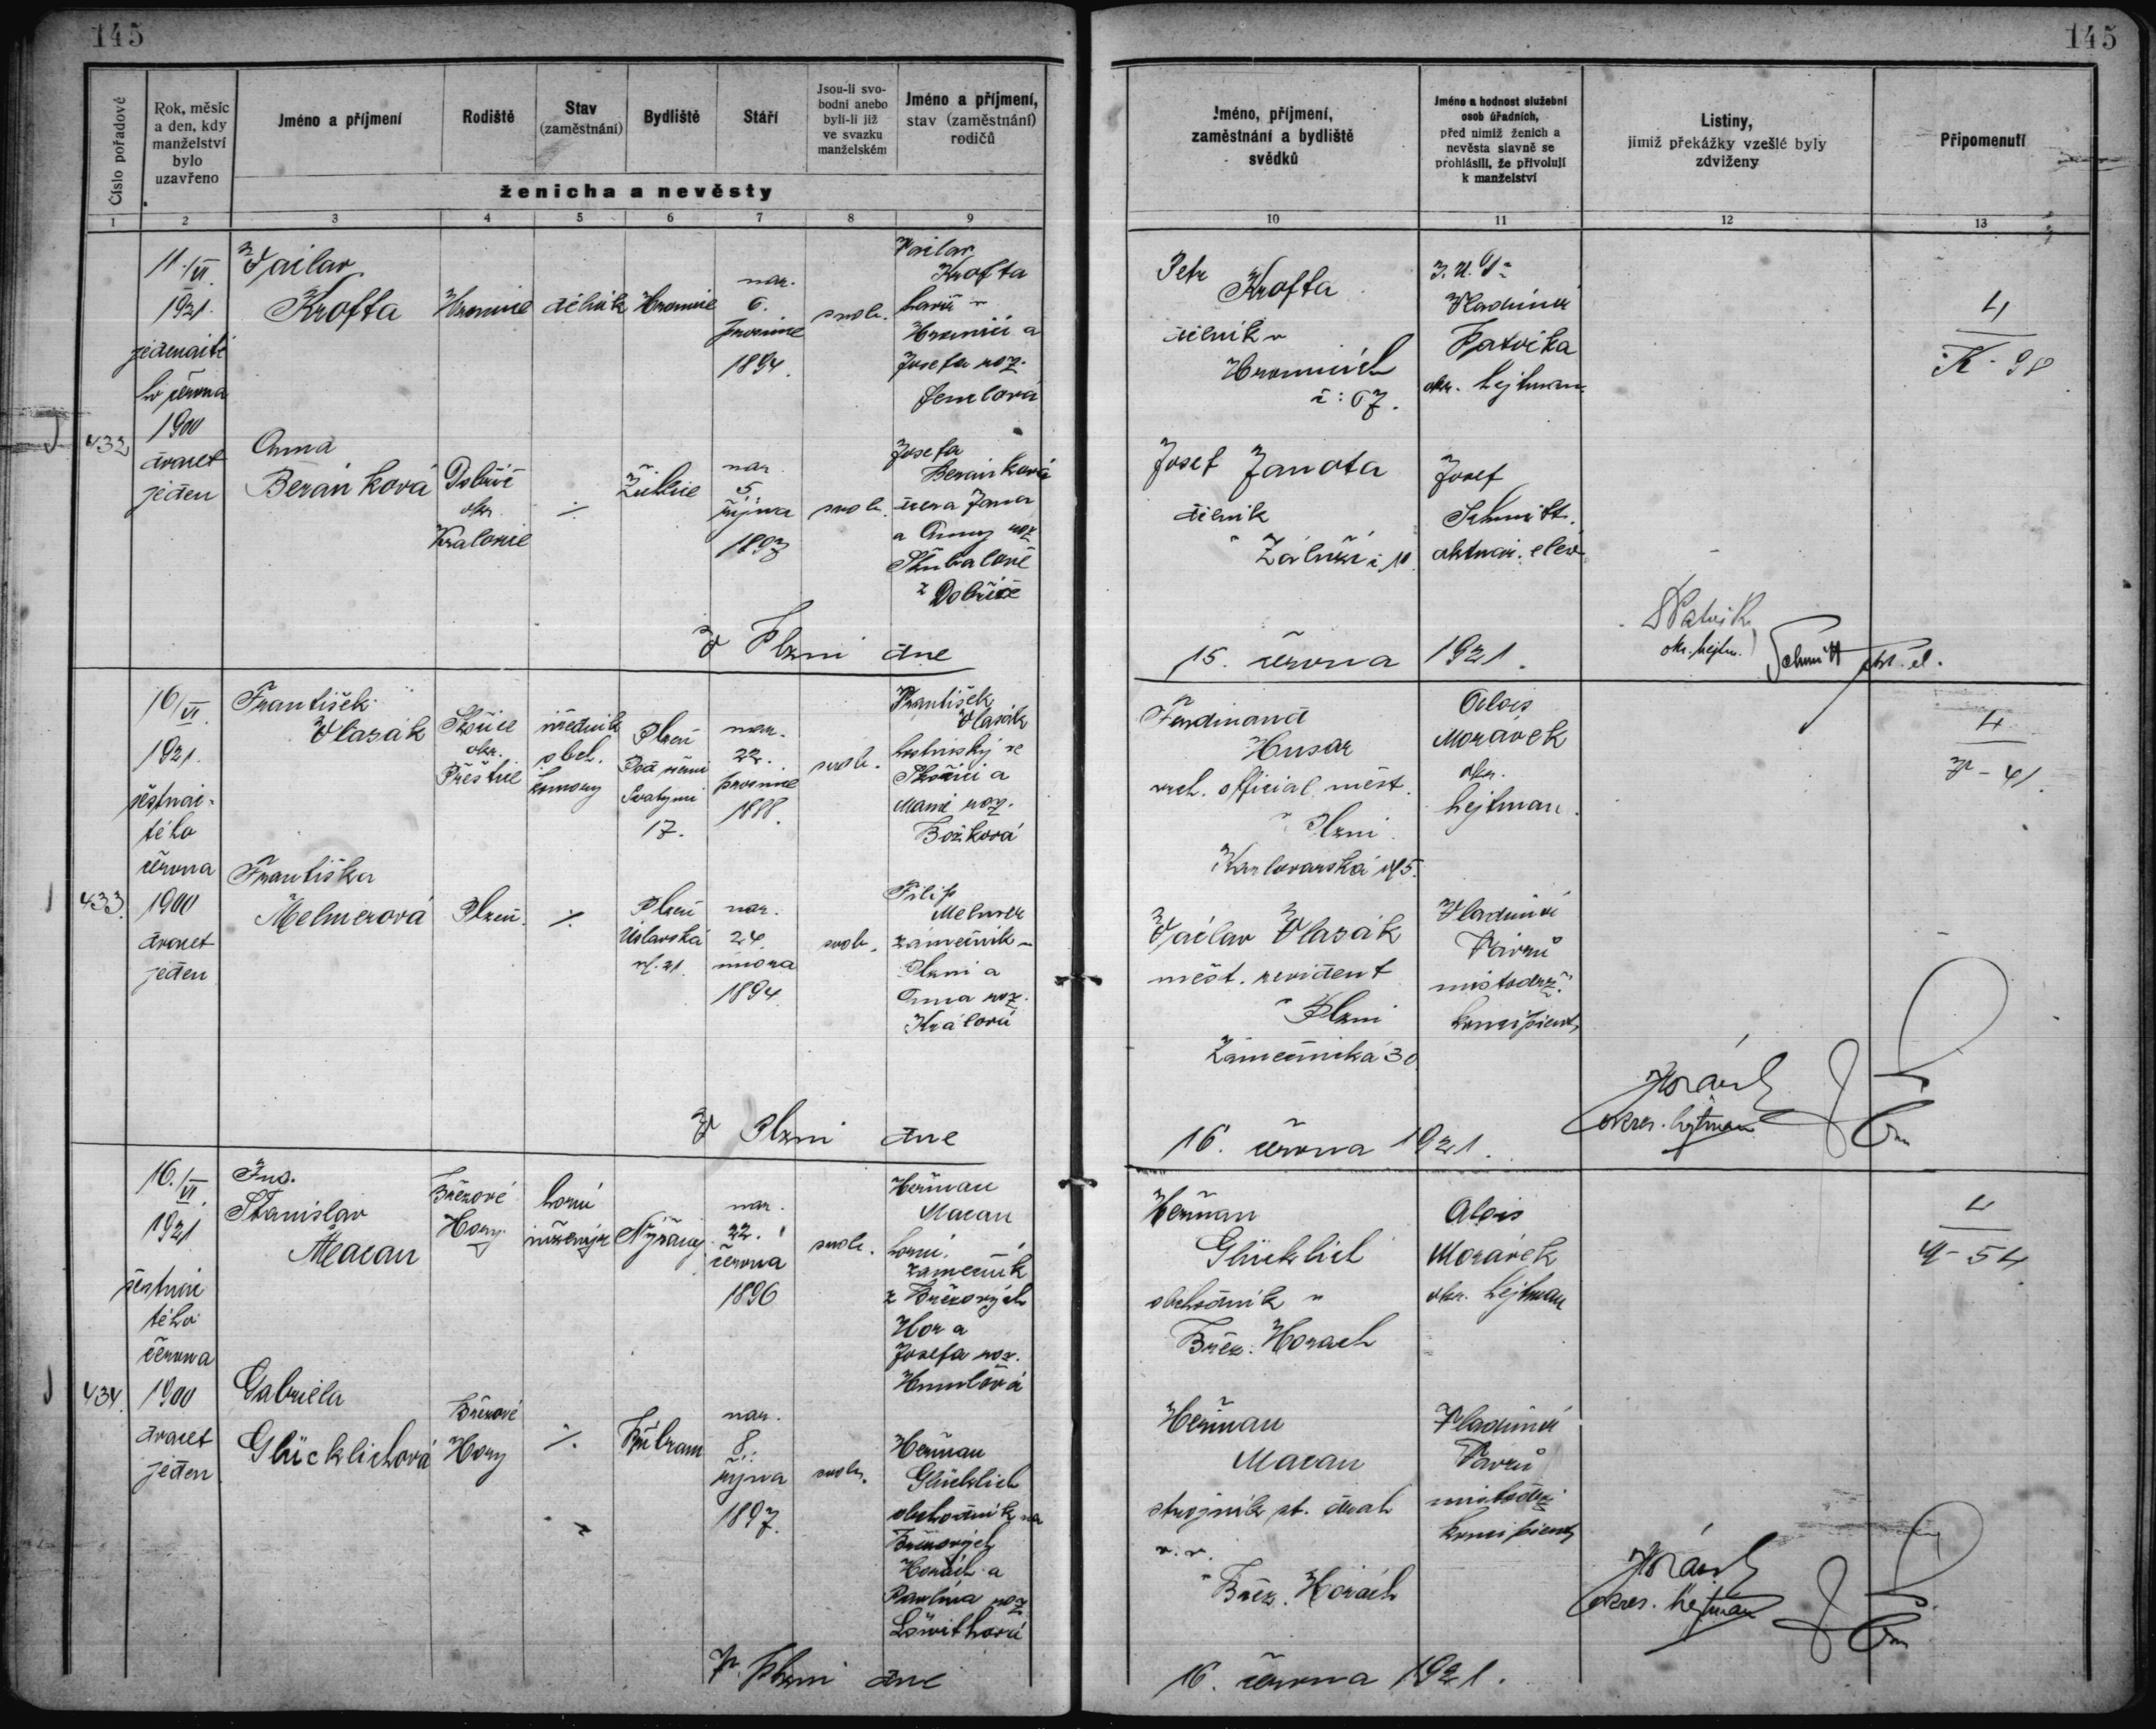 145
145
Číslo pořadové
Rok, měsíc
a den, kdy
manželství
bylo
uzavřeno
Jméno a příjmení
Rodiště
Stav
(zaměstnání)
Bydliště
Stáří
Jsou-li svo-
bodni anebo
byli-li již
ve svazku
manželském
Jméno a příjmení,
stav (zaměstnání)
rodičů
ženicha a nevěsty
1 2 3 4 5 6 7 8 9
Jméno, příjmení,
zaměstnání a bydliště
svědků
Jméno a hodnost služební
osob úřadních,
před nimiž ženich a
nevěsta slavně se
prohlásili, že přivolují
k manželství
Listiny,
jimiž překážky vzešlé byly
zdviženy
Připomenutí
10 11 12 13
432
11./VI.
1921.
jedenácté
ho června
1900
dvacet
jeden
Václav
Krofta
Hromnice
dělník
Hromnice
nar.
6.
prosince
1894.
svob.
Václav
Krofta
Hromnici a
Josefa roz.
Anna
Beránková
Dobříč
okr.
Kralovice
./.
Žichlice
nar.
5.
října
1897
svob.
Josefa
Beránková
dcera Jana
a Anny roz.
z Dobříče
Petr
Krofta
dělník v
Hromnicích
č: 67.
Vladimír
okr. hejtman
Josef Janota
dělník
v Záluží č 10
Josef
Schmitt.
aktuár. elév
V Plzni dne
15. června 1921.
okr. hejtm.
Schmitt akt. el.
4
K - 98
433.
16/VI.
1921.
šestnác-
tého
června
1900
dvacet
jeden
František
Vlasák
okr.
Přeštice
úředník
obch.
komory
Plzeň
Pod všemi
Svatými
17.
nar.
22.
prosince
1888.
svob.
František
Vlasák
hostinský ve
Marie roz.
Božková
Františka
Melmerová
Plzeň.
./.
Plzeň
Úslavská
č. 21.
nar.
24.
února
1894
svob.
Filip
Melmer
zámečník v
Plzni a
Anna roz.
Králová
Ferdinand
Husar
vrch. oficial měst.
v Plzni
Karlovarská
Alois
Morávek
okr.
hejtman.
Václav Vlasák
měst. revident
v Plzni
Zámečnická 30
Vladimír
Vávrů
místodrž.
koncipient
V Plzni dne
16. června 1921.
okres. hejtman
4
V - 41.
434.
16./VI.
1921
šestnác
tého
června
1900
dvacet
jeden
Ing.
Stanislav
Macan
Březové
Hory
horní
inženýr
Nýřany
nar.
22.
června
1896
svob.
Heřman
Macan
horní.
zámečník
z Březových
Hor a
Josefa roz.
Gabriela
Glücklichová
Březové
Hory
./.
Příbram
nar.
8.
října
1897.
svob.
Heřman
Glücklich
obchodník na
Březových
Horách a
Pavlína roz
Löwithová
Heřman
Glücklich
obchodník v
Březː Horách
Alois
Morávek
okr. hejtman
Heřman
Macan
strojník st. drah
v. v.
v Břez. Horách
Vladimír
Vávrů
místodrž.
koncipient
V Plzni dne
16. června 1921.
okres. hejtman
4
M - 54.